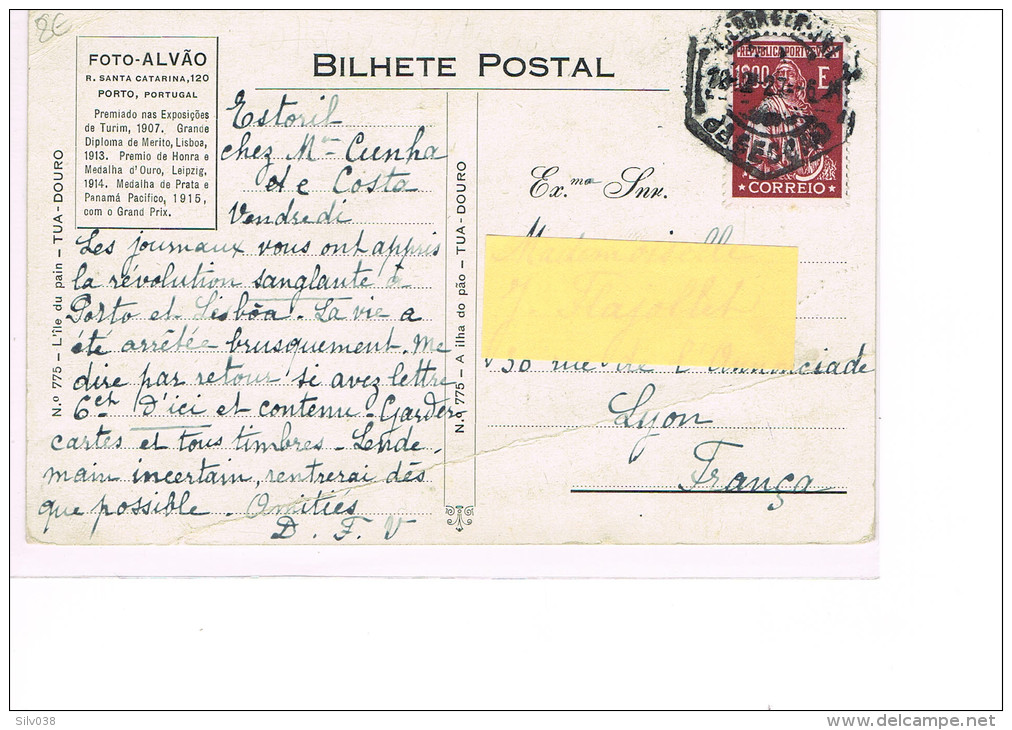 8€
FOTO-ALVÃO
R. SANTA CATARINA, 120
PORTO, PORTUGAL
Premiado nas Exposições
de Turim, 1907. Grande
Diploma de Merito, Lisboa,
1913. Premio de Honra e
Medalha d'Ouro, Leipzig,
1914. Medalha de Prata e
Panamá Pacifico, 1915,
com o Grand Prix.
BILHETE POSTAL
N.º 775 — L'île du pain — TUA-DOURO
N.º 775 — A ilha do pão — TUA-DOURO
Estoril
chez Mme Cunha
de Costa
Vendredi
Les journaux vous ont appris
la révolution sanglante à
Porto et Lisbõa. La vie a
été arrêtée brusquement. Me
dire par retour si avez lettre
6ct D'ici et contenu - Garder
cartes et tous timbres - Lende-
main incertain, rentrerai dès
que possible. Amitiés
D. F. V
REPUBLICA PORTUGUESA
1$00 E
CORREIO
Ex.mo Snr.
Mademoiselle
J
rue de l'Annonciade
Lyon
França
Silv038
delcampe.net